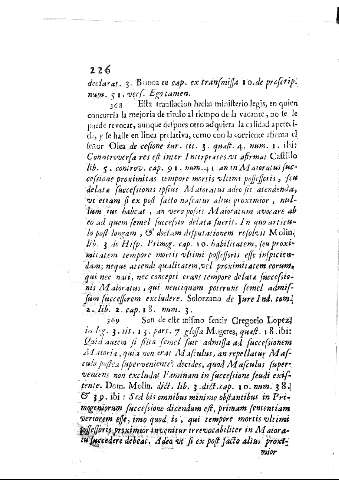 226
declarat. 3. Bonden in cap. ex transmissa 10. de prescrip.
num. 51. vers. Ego tamen.
308 Esta translacion hecha ministerio legis, en quien
concurria la mejoria de titulo al tiempo de la vacante, no se le
puede revocar, aunque despues otro adquiera la calidad apeteci-
da, y se halle en linea prelativa, como con la corriente afirma el
señor Olea de cessione jur. tit. 3. quæst. 4. num. 1. ibi:
Controversa res est inter Interpretes ut affirmat Castillo
lib. 5. controv. cap. 91. num. 41 an in Maioratus suc-
cessione proximitas tempore mortis ultimi possessoris, seu
delatæ successionis ipsius Maioratus adeo sit attendenda,
ut etiam si ex post facto nascatur alius proximior, nul-
lum ius habeat, an vero possit Maioratum avocare ab
eo ad quem semel successio delata fuerit. In quo articu-
lo post longam, & doctam disputationem resolvit Molin.
lib. 3 de Hisp. Primog. cap. 10. habilitatem, seu proxi-
mitatem tempore mortis ultimi possessoris esse inspicien-
dam; neque attendi qualitatem, vel proximitatem eorum,
qui nec nati, nec concepti erant tempore delatæ successio-
nis Maioratus, qui neutiquam poterunt semel admis-
sum successorem excludere. Solorzano de Jure Ind. tom.
2. lib. 2. cap. 18. num. 3.
309 Son de este mismo sentir Gregorio Lopez
in leg. 3. tit. 13. part. 7 glossa Mugeres, quæst. 18. ibi:
Quid autem si fuit semel fuit admissa ad successionem
Maioriæ, quia non erat Masculus, an repellatur Mas-
culo postea superveniente? decides, quod Masculus super-
veniens non excludat fœminam in successione feudi exis-
tente. Dom. Molin. dict. lib. 3. dict. cap. 10. num. 38.
& 39. ibi: Sed bis omnibus minime obstantibus in Pri-
mogeniorum successione dicendum est, primam sententiam
veriorem esse, imo quod is, qui tempore mortis ultimi
possessoris proximior invenitur irrevocabiliter in Maiora-
tu succedere debeat. Adeo ut si ex post facto alius proxi-
mior